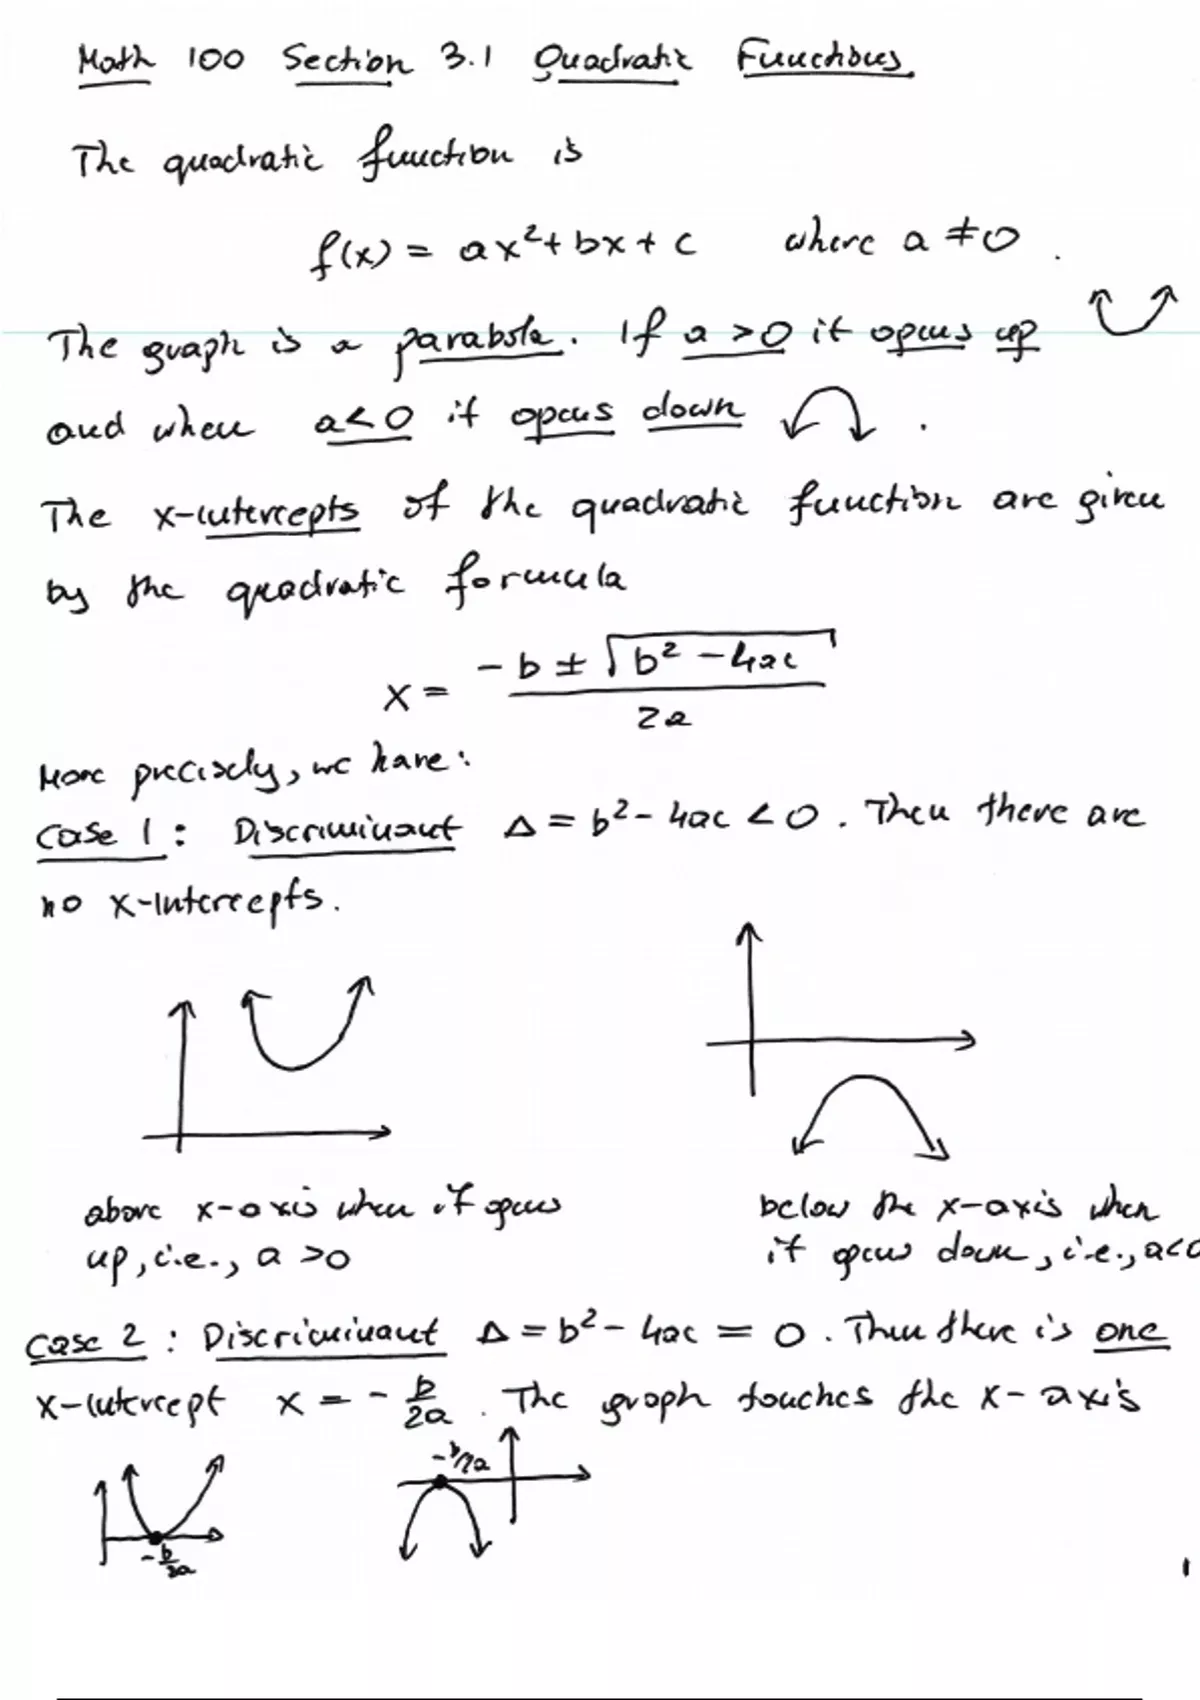 Math 100 Section 3.1 Quadratic Functions
The quadratic function is
f(x) = ax² + bx + c where a ≠ 0.
The graph is a parabola. If a > 0 it opens up
and when a < 0 it opens down.
The x-intercepts of the quadratic function are given
by the quadratic formula
x = (-b ± √(b² - 4ac)) / 2a
More precisely, we have:
Case 1: Discriminant Δ = b² - 4ac < 0. Then there are
no x-intercepts.
above x-axis when it opens
up, i.e., a > 0
below the x-axis when
it opens down, i.e., a < 0
Case 2: Discriminant Δ = b² - 4ac = 0. Then there is one
x-intercept x = -b/2a. The graph touches the x-axis
-b/2a
-b/2a
1